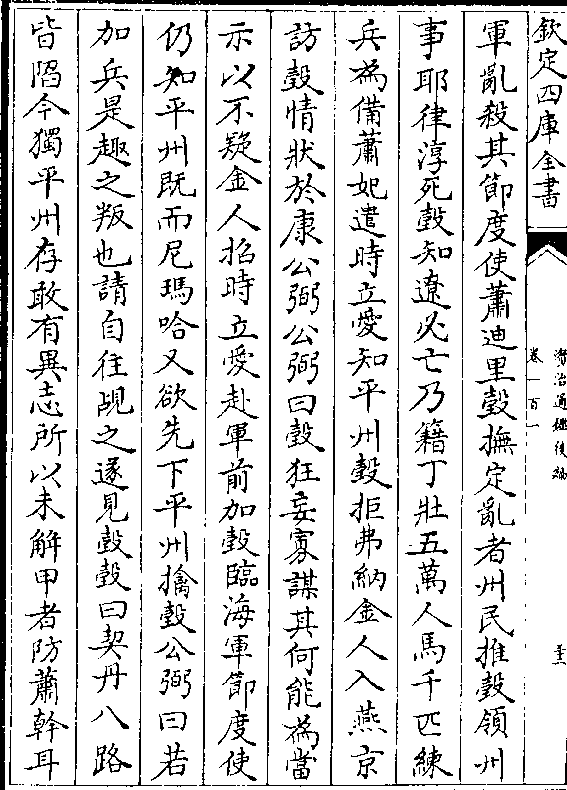 欽定四庫全書
資治通鑑後編
卷一百一
軍亂殺其節度使蕭迪里瑴撫定亂者州民推瑴領州
事耶律淳死瑴知遼必亡乃籍丁壯五萬人馬千匹練
兵為備蕭妃遣時立愛知平州瑴拒弗納金人入燕京
訪瑴情狀於康公弼公弼曰瑴狂妄寡謀其何能為當
示以不疑金人招時立愛赴軍前加瑴臨海軍節度使
仍知平州既而尼瑪哈又欲先下平州擒瑴公弼曰若
加兵是趣之叛也請自往覘之遂見瑴瑴曰契丹八路
皆陷今獨平州存敢有異志所以未解甲者防蕭幹耳